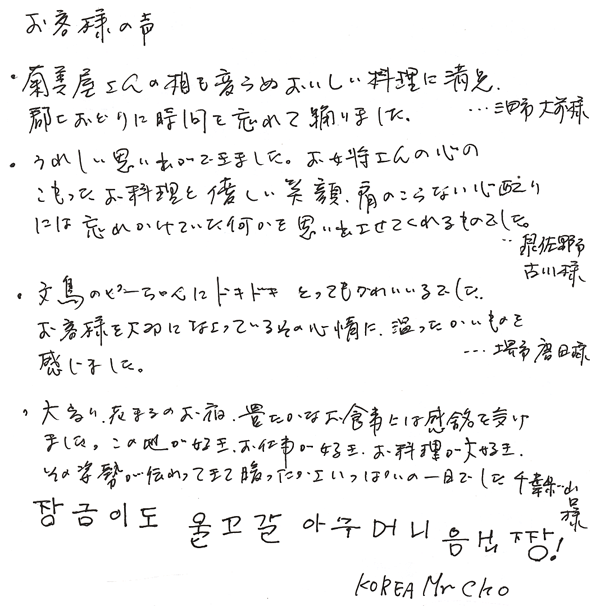 お客様の声
・菊美屋さんの相も変らぬおいしい料理に満足.
郡上おどりに時間を忘れて踊りました。
…三田市 大前様
・うれしい思い出ができました。お女将さんの心の
こもったお料理と優しい笑顔、肩のこらない心配り
には忘れかけていた何かを思い出させてくれるものでした。
…泉佐野市
古川様
・文鳥のピーちゃんにドキドキ とってもかわいいるでした.
お客様を大切になさっているその心情に、温ったかいものを
感じました。
…堺市 唐田様
・大盛り、花まるのお宿、豊たかなお食事には感銘を受け
ました。この地が好き、お仕事が好き、お料理が大好き、
その姿勢が伝わってきて腹ったかさいっぱいの一日でした 千葉県 山口様
장금이도 울고갈 아주머니 음식 짱!
KOREA Mr CHO